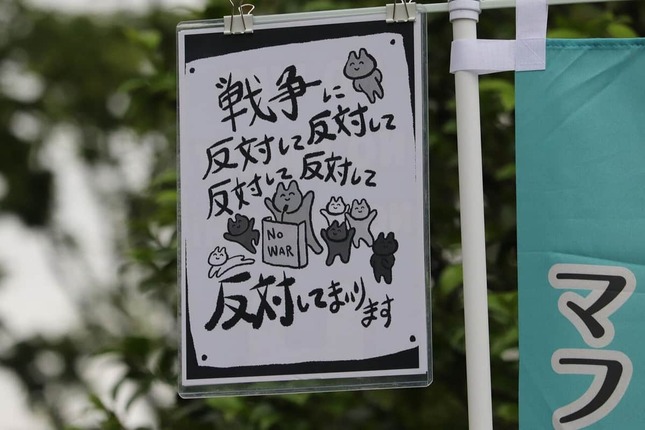 戦争に
反対して反対して
反対して反対して
NO
WAR
反対してまいります
マフ